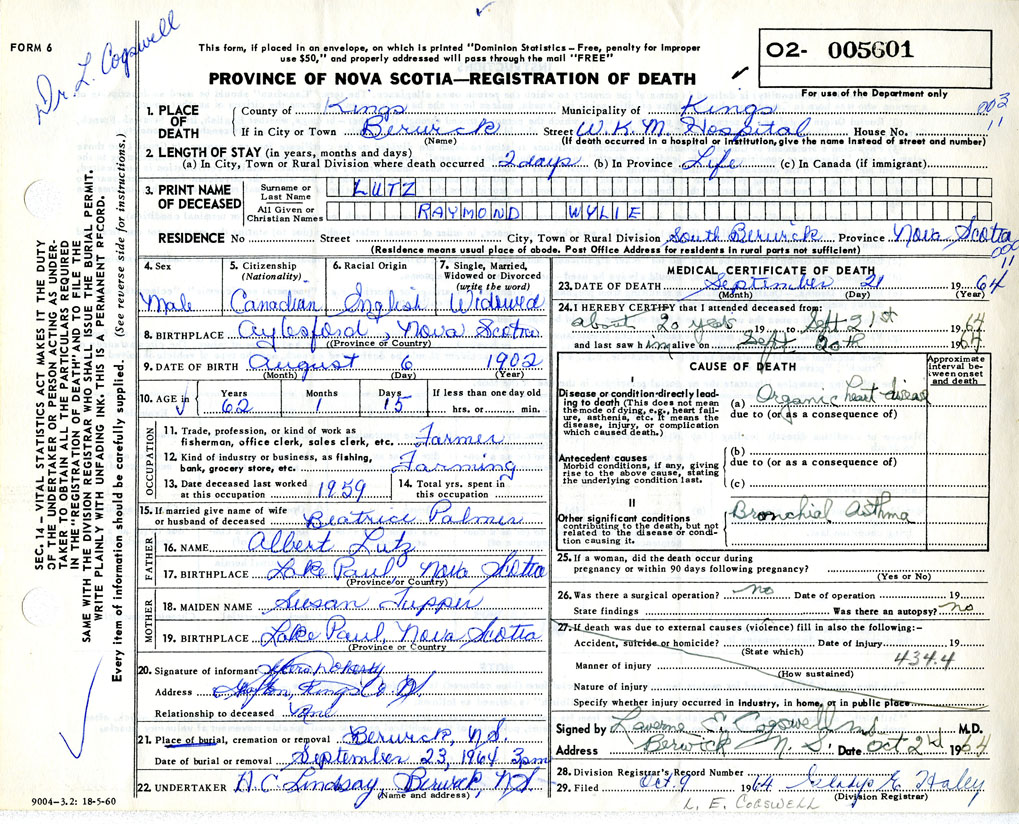 FORM 6
Dr. L. Cogswell
This form, if placed in an envelope, on which is printed "Dominion Statistics – Free, penalty for improper
use $50," and properly addressed will pass through the mail "FREE"
PROVINCE OF NOVA SCOTIA—REGISTRATION OF DEATH
O2- 005601
For use of the Department only
SEC. 14 – VITAL STATISTICS ACT MAKES IT THE DUTY
OF THE UNDERTAKER OR PERSON ACTING AS UNDER-
TAKER TO OBTAIN ALL THE PARTICULARS REQUIRED
IN THE "REGISTRATION OF DEATH" AND TO FILE THE
SAME WITH THE DIVISION REGISTRAR WHO SHALL ISSUE THE BURIAL PERMIT.
WRITE PLAINLY WITH UNFADING INK. THIS IS A PERMANENT RECORD.
Every item of information should be carefully supplied. (See reverse side for instructions.)
1. PLACE OF DEATH County of Kings Municipality of Kings
003
11
If in City or Town Berwick Street W. K. M. Hospital House No.
(Name) (If death occurred in a hospital or institution, give the name instead of street and number)
2. LENGTH OF STAY (in years, months and days)
(a) In City, Town or Rural Division where death occurred 2 days (b) In Province Life (c) In Canada (if immigrant)
3. PRINT NAME OF DECEASED
Surname or Last Name LUTZ
All Given or Christian Names RAYMOND WYLIE
RESIDENCE No Street City, Town or Rural Division South Berwick Province Nova Scotia
(Residence means usual place of abode. Post Office Address for residents in rural parts not sufficient)
4. Sex Male
5. Citizenship (Nationality) Canadian
6. Racial Origin English
7. Single, Married, Widowed or Divorced (write the word) Widowed
8. BIRTHPLACE Aylesford, Nova Scotia
(Province or Country)
9. DATE OF BIRTH August 6 1902
(Month) (Day) (Year)
10. AGE in Years Months Days If less than one day old
62 1 15 hrs. or min.
OCCUPATION
11. Trade, profession, or kind of work as
fisherman, office clerk, sales clerk, etc. Farmer
12. Kind of industry or business, as fishing,
bank, grocery store, etc. Farming
13. Date deceased last worked at this occupation 1959
14. Total yrs. spent in this occupation
15. If married give name of wife
or husband of deceased Beatrice Palmer
FATHER
16. NAME Albert Lutz
17. BIRTHPLACE Lake Paul, Nova Scotia
(Province or Country)
MOTHER
18. MAIDEN NAME Susan Tupper
19. BIRTHPLACE Lake Paul, Nova Scotia
(Province or Country)
20. Signature of informant
Address Kings Co N.S.
Relationship to deceased
21. Place of burial, cremation or removal Berwick, N.S.
Date of burial or removal September 23, 1964 3pm
22. UNDERTAKER H.C. Lindsay, Berwick, N.S.
(Name and address)
9004—3.2: 18-5-60
MEDICAL CERTIFICATE OF DEATH
23. DATE OF DEATH September 21 1964
(Month) (Day) (Year)
24. I HEREBY CERTIFY that I attended deceased from:
about 20 years 19 to Sept 21st 1964
and last saw him alive on Sept 20th 1964
CAUSE OF DEATH
Approximate interval between onset and death
I
Disease or condition directly lead-
ing to death (This does not mean
the mode of dying, e.g., heart fail-
ure, asthenia, etc. It means the
disease, injury, or complication
which caused death.)
(a) Organic heart disease
due to (or as a consequence of)
Antecedent causes
Morbid conditions, if any, giving
rise to the above cause, stating
the underlying condition last.
(b)
due to (or as a consequence of)
(c)
II
Other significant conditions
contributing to the death, but not
related to the disease or condi-
tion causing it.
Bronchial Asthma
25. If a woman, did the death occur during
pregnancy or within 90 days following pregnancy?
(Yes or No)
26. Was there a surgical operation? no Date of operation 19
State findings Was there an autopsy? no
27. If death was due to external causes (violence) fill in also the following:–
Accident, suicide or homicide? Date of injury 19
(State which)
434.4
Manner of injury
(How sustained)
Nature of injury
Specify whether injury occurred in industry, in home, or in public place
Signed by Laverne E. Cogswell M.D.
Address Berwick N. S. Date Oct 2nd 1964
28. Division Registrar's Record Number
29. Filed Oct 9 1964 Gladys E. Haley
(Division Registrar)
L. E. COGSWELL